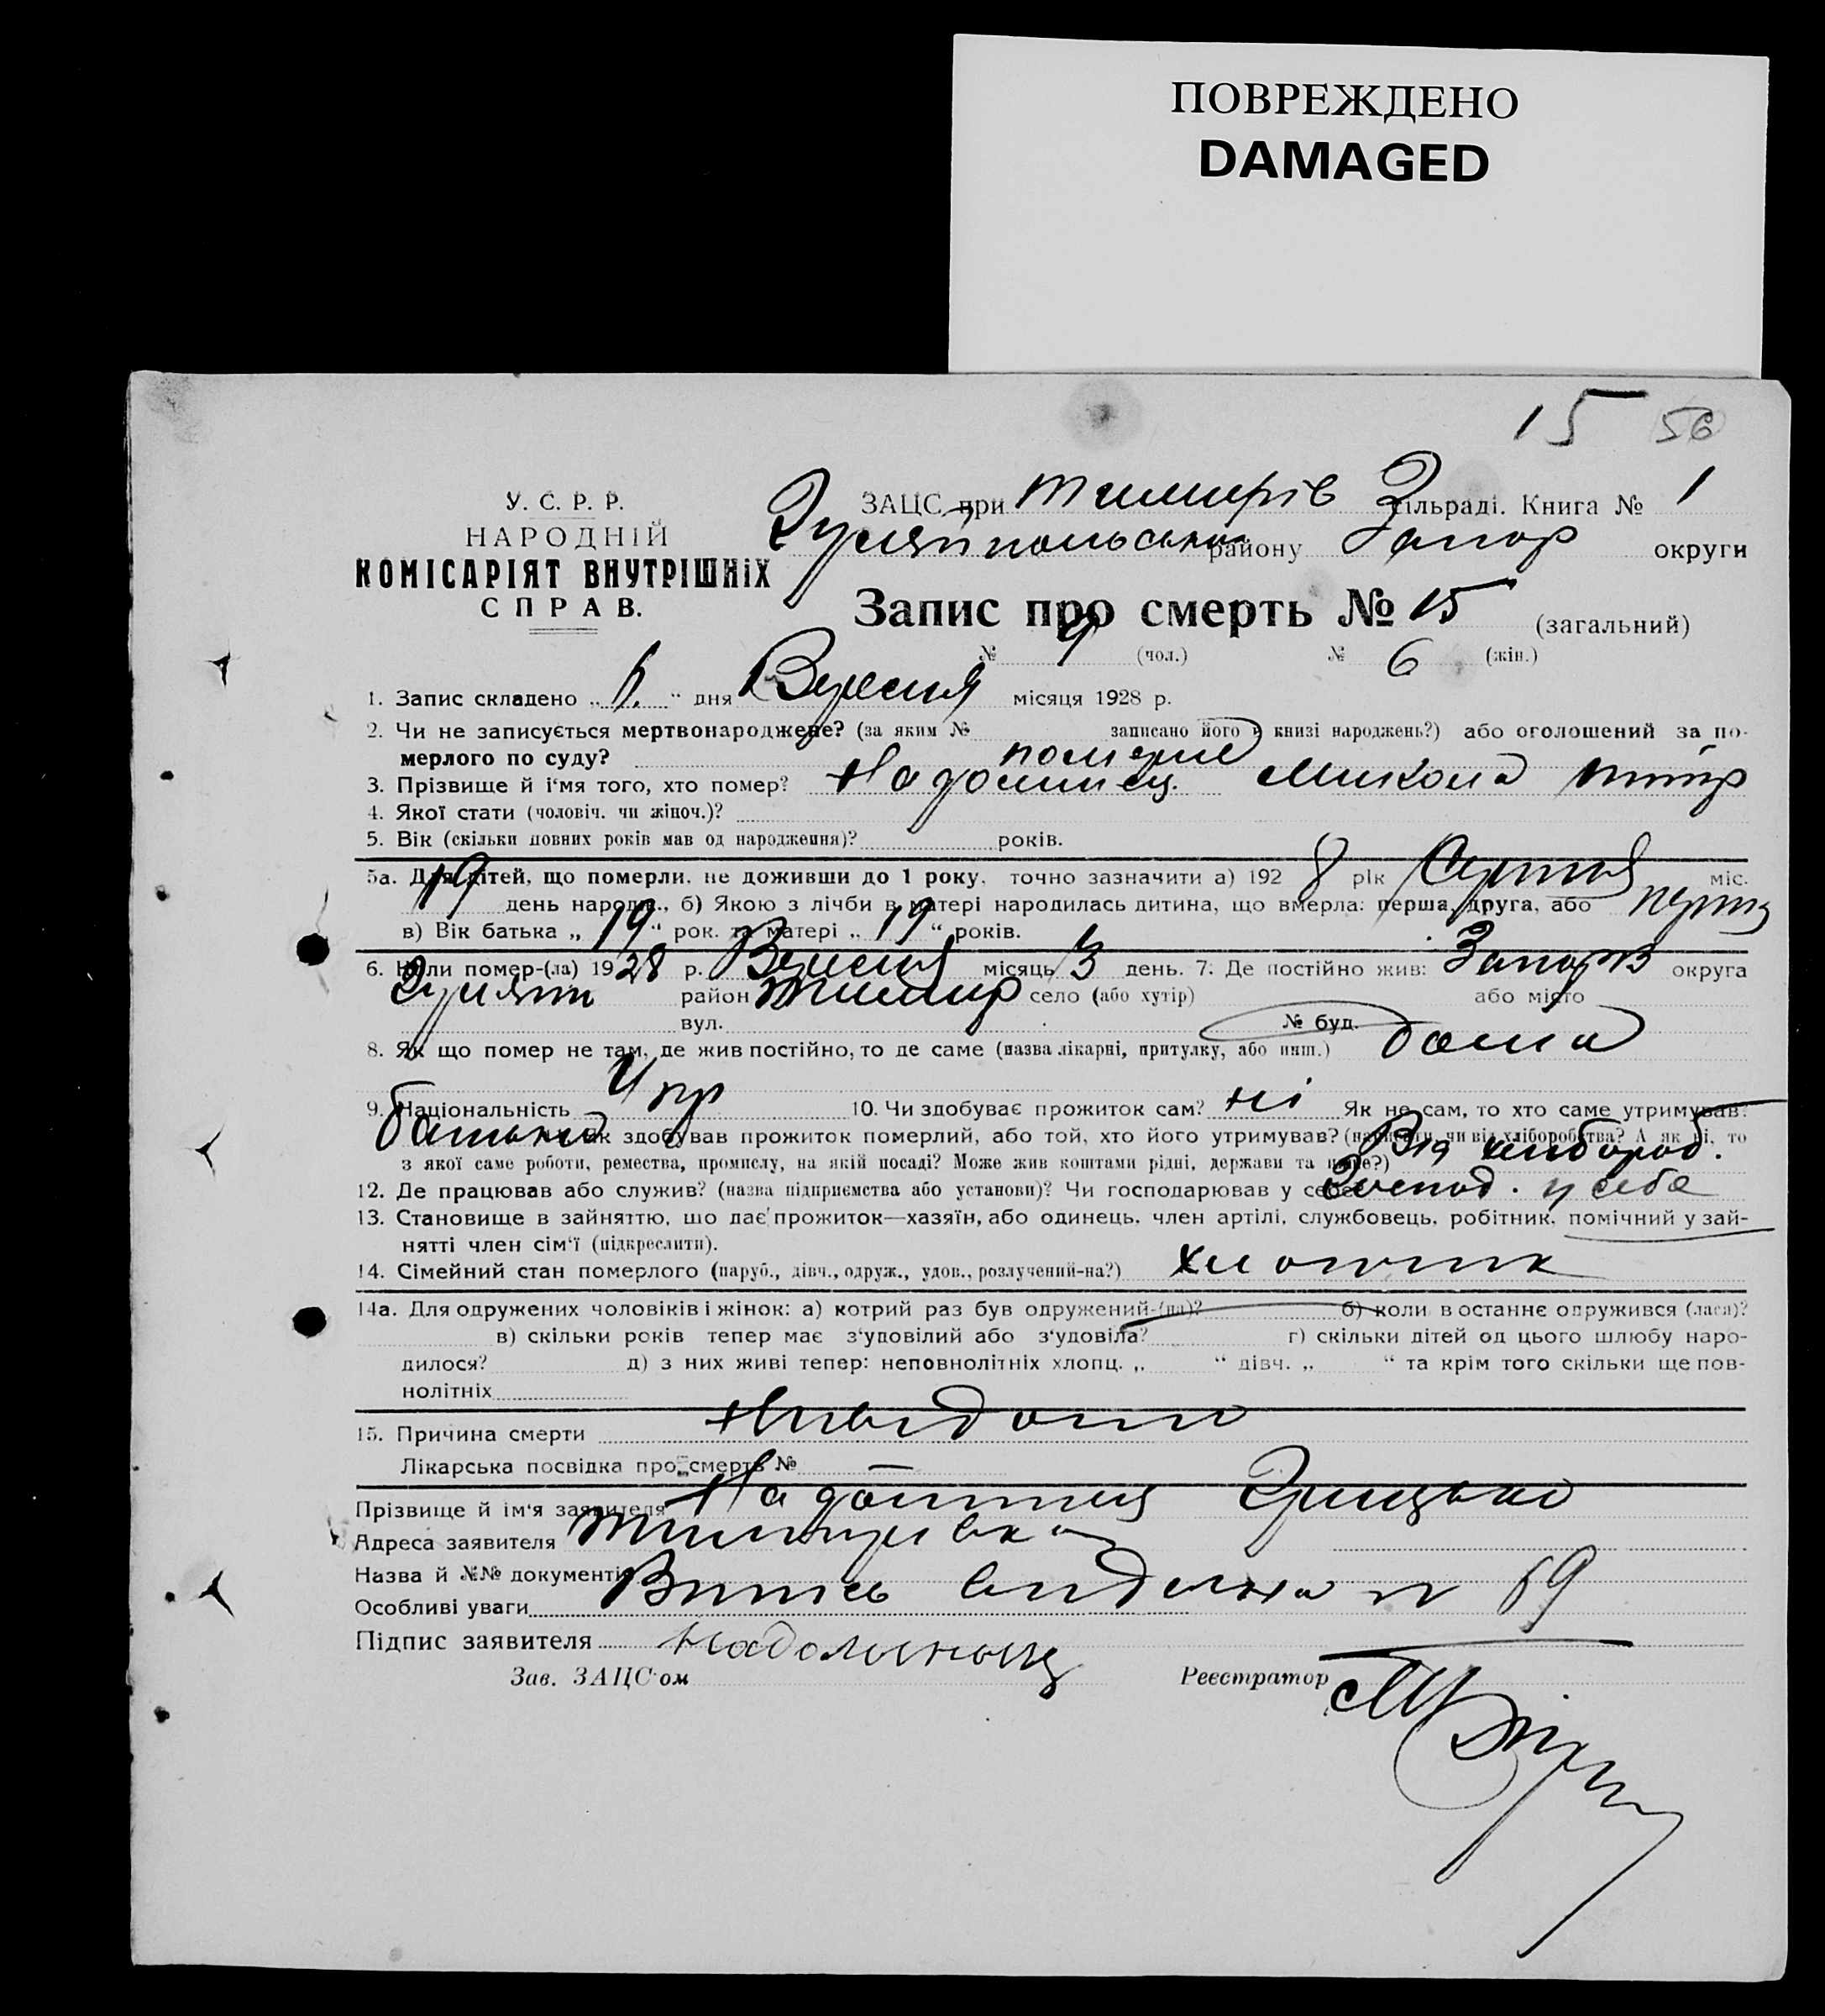 ПОВРЕЖДЕНО
DAMAGED
15 56
У. С. Р. Р.
НАРОДНІЙ
КОМІСАРІЯТ ВНУТРІШНІХ
СПРАВ.
ЗАЦС при сільраді. Книга № 1
району Запор округи
Запис про смерть № 15 (загальний)
№ 9 (чол.) № 6 (жін.)
1. Запис складено „ “ дня Вересня місяця 1928 р.
2. Чи не записується мертвонароджене? (за яким № записано його в книзі народжень?) або оголошений за по-
мерлого по суду? померле
3. Прізвище й і'мя того, хто помер? Микола
4. Якої стати (чоловіч. чи жіноч.)?
5. Вік (скільки повних років мав од народження)? років.
5а. Для дітей, що померли, не доживши до 1 року, точно зазначити а) 1928 рік Серпня міс.
19 день народж., б) Якою з лічби в матері народилась дитина, що вмерла: перша, друга, або перша
в) Вік батька „ 19 “ рок. та матері „ 19 “ років.
6. Коли помер-(ла) 1928 р. Вересня місяць 3 день. 7. Де постійно жив: округа
район село (або хутір) або місто
вул. № буд.
8. Як що помер не там, де жив постійно, то де саме (назва лікарні, притулку, або инш.) дома
9. Національність Укр 10. Чи здобуває прожиток сам? ні Як не сам, то хто саме утримував?
батько Як здобував прожиток померлий, або той, хто його утримував? (написати, чи від хліборобства? А як ні, то
з якої саме роботи, ремества, промислу, на якій посаді? Може жив коштами рідні, держави та инше?) Від хлібороб.
12. Де працював або служив? (назва підприємства або установи)? Чи господарював у себе? Господ. у себе
13. Становище в зайняттю, що дає прожиток—хазяїн, або одинець, член артілі, службовець, робітник, помічний у зай-
нятті член сім'ї (підкреслити).
14. Сімейний стан померлого (паруб., дівч., одруж., удов., розлучений-на?) хлопчик
14а. Для одружених чоловіків і жінок: а) котрий раз був одружений-(на)? б) коли в останнє одружився (лася)?
в) скільки років тепер має з'удовілий або з'удовіла? г) скільки дітей од цього шлюбу наро-
дилося? д) з них живі тепер: неповнолітніх хлопц. „ “ дівч. „ “ та крім того скільки ще пов-
нолітніх
15. Причина смерти Невідомо
Лікарська посвідка про смерть № —
Прізвище й ім'я заявителя Грицько
Адреса заявителя
Назва й №№ документів
Особливі уваги
Підпис заявителя
Зав. ЗАЦС'ом Реєстратор